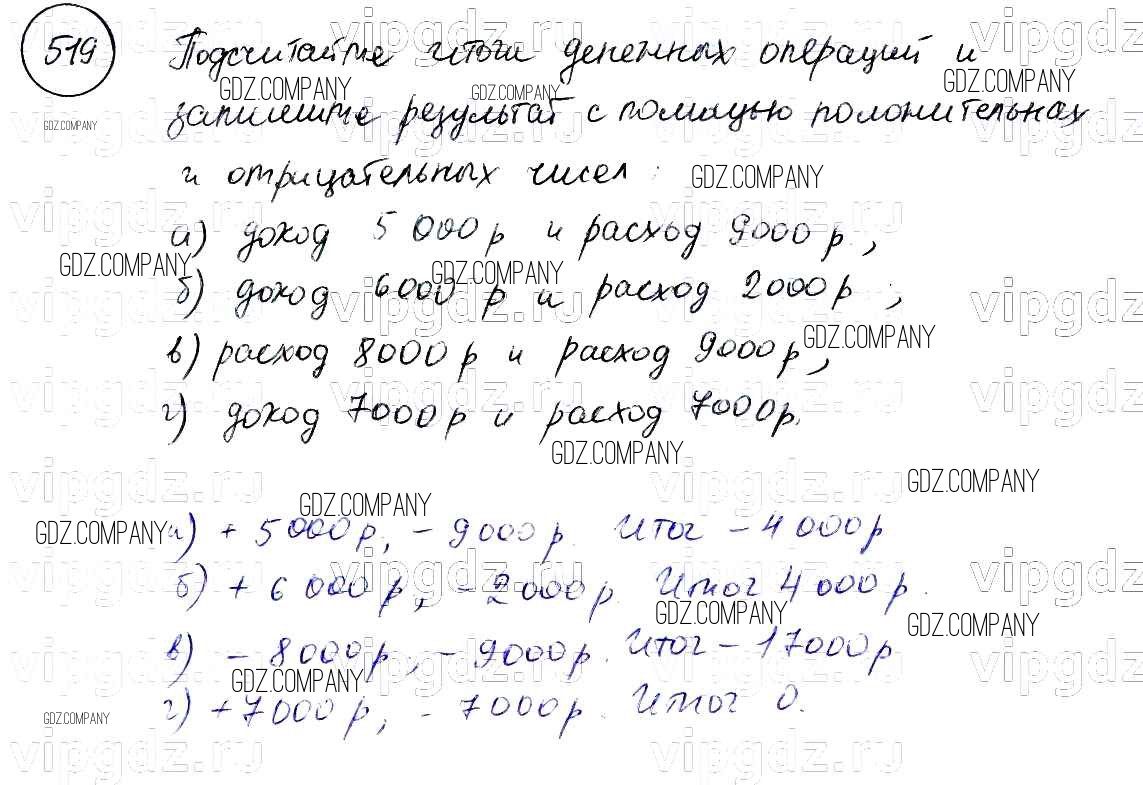 519 Подсчитайте итоги денежных операций и
запишите результат с помощью положительных
и отрицательных чисел :
а) доход 5 000 р и расход 9000 р.,
б) доход 6000 р и расход 2000 р.,
в) расход 8000 р и расход 9000 р,
г) доход 7000 р и расход 7000р.
а) + 5 000 р, - 9 000 р. Итог - 4 000 р
б) + 6 000 р, - 2 000 р. Итог 4 000 р.
в) - 8 000 р, - 9000 р. Итог - 17000 р
г) + 7000 р, - 7 000 р. Итог 0.
GDZ.COMPANY
vipgdz.ru